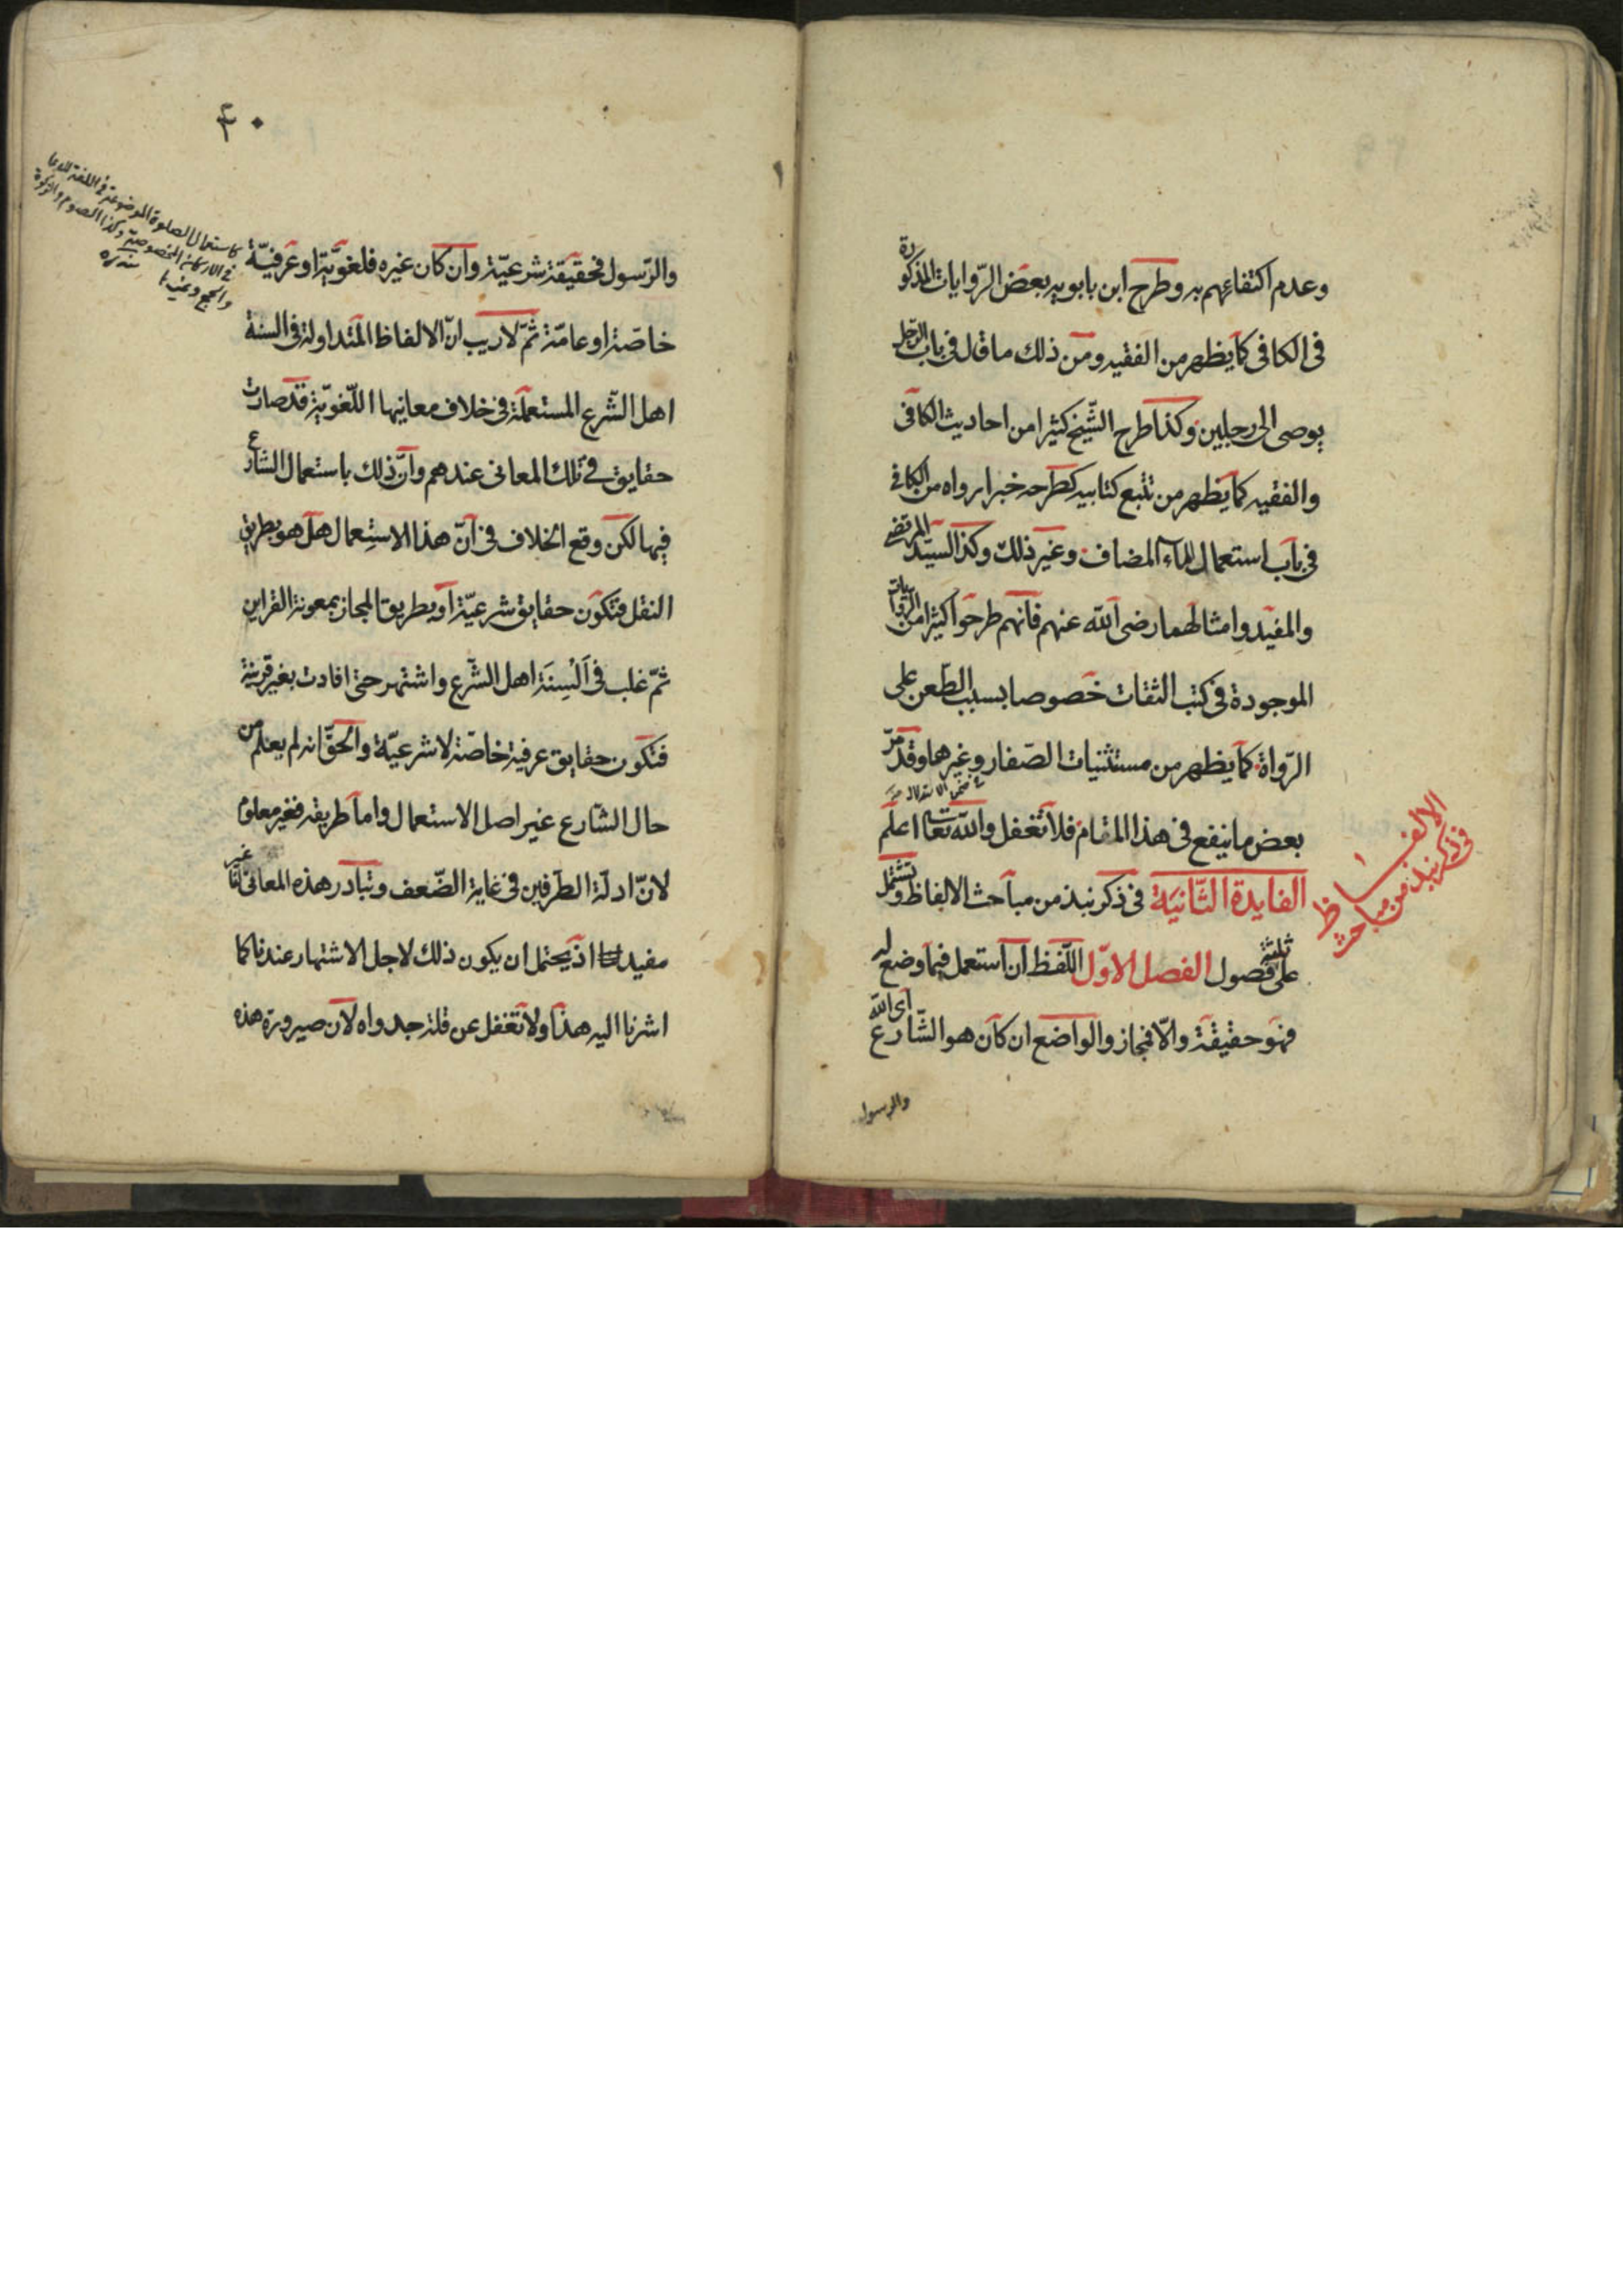 وعدم اكتفائهم به وطرح ابن بابويه بعض الرّوايات المذكورة
فى الكافى كما يظهر من الفقيه ومن ذلك ما قال فى باب الرّجل
يوصى الى رجلين وكذا طرح الشّيخ كثيرا من احاديث الكافى
والفقيه كما يظهر من تتبع كتابيه كطرحه خبرا رواه من الكافى
فى باب استعمال الماء المضاف وغير ذلك وكذا السيّد المرتضى
والمفيد وامثالهما رضى اللّه عنهم فانّهم طرحوا كثيرا من الرّوايات
الموجودة فى كتب الثقات خصوصا بسبب الطّعن على
الرّواة كما يظهر من مستثنيات الصّفار وغيرها وقد مرّ
بعض ما ينفع فى هذا المقام فلا تغفل واللّه تعالى اعلم
الفايدة الثّانية فى ذكر نبذ من مباحث الالفاظ وتشتمل
على ثلثة فصول الفصل الاوّل اللّفظ ان استعمل فيما وضع له
فهو حقيقة والّا فمجاز والواضع ان كان هو الشّارع اى اللّه
والرسول
فى ذكر نبذ من مباحث
الالفاظ
٤٠
والرّسول فحقيقة شرعيّة وان كان غيره فلغويّة او عرفيّة
خاصّة او عامّة ثمّ لا ريب انّ الالفاظ المتداولة فى السنة
اهل الشّرع المستعملة فى خلاف معانيها اللّغويّة قد صارت
حقايق فى تلك المعانى عندهم وانّ ذلك باستعمال الشارع
فيها لكن وقع الخلاف فى انّ هذا الاستعمال هل هو بطريق
النقل فتكون حقايق شرعيّة او بطريق المجاز بمعونة القراين
ثمّ غلب فى اَلْسِنَة اهل الشّرع واشتهر حتى افادت بغير قرينة
فتكون حقايق عرفية خاصّة لا شرعيّة والحقّ انه لم يعلم من
حال الشّارع غير اصل الاستعمال واما طريقه فغير معلوم
لانّ ادلّة الطّرفين فى غاية الضّعف وتبادر هذه المعانى لنا غير
مفيد اذ يحتمل ان يكون ذلك لاجل الاشتهار عندنا كما
اشرنا اليه هذا ولا تغفل عن قلة جدواه لان صيرورة هذه
كاستعمال الصلوة الموضوعة فى اللغة للدعا
فى الاركان المخصوصة وكذا الصوم والزكوة
والحج وغيرها منه ره